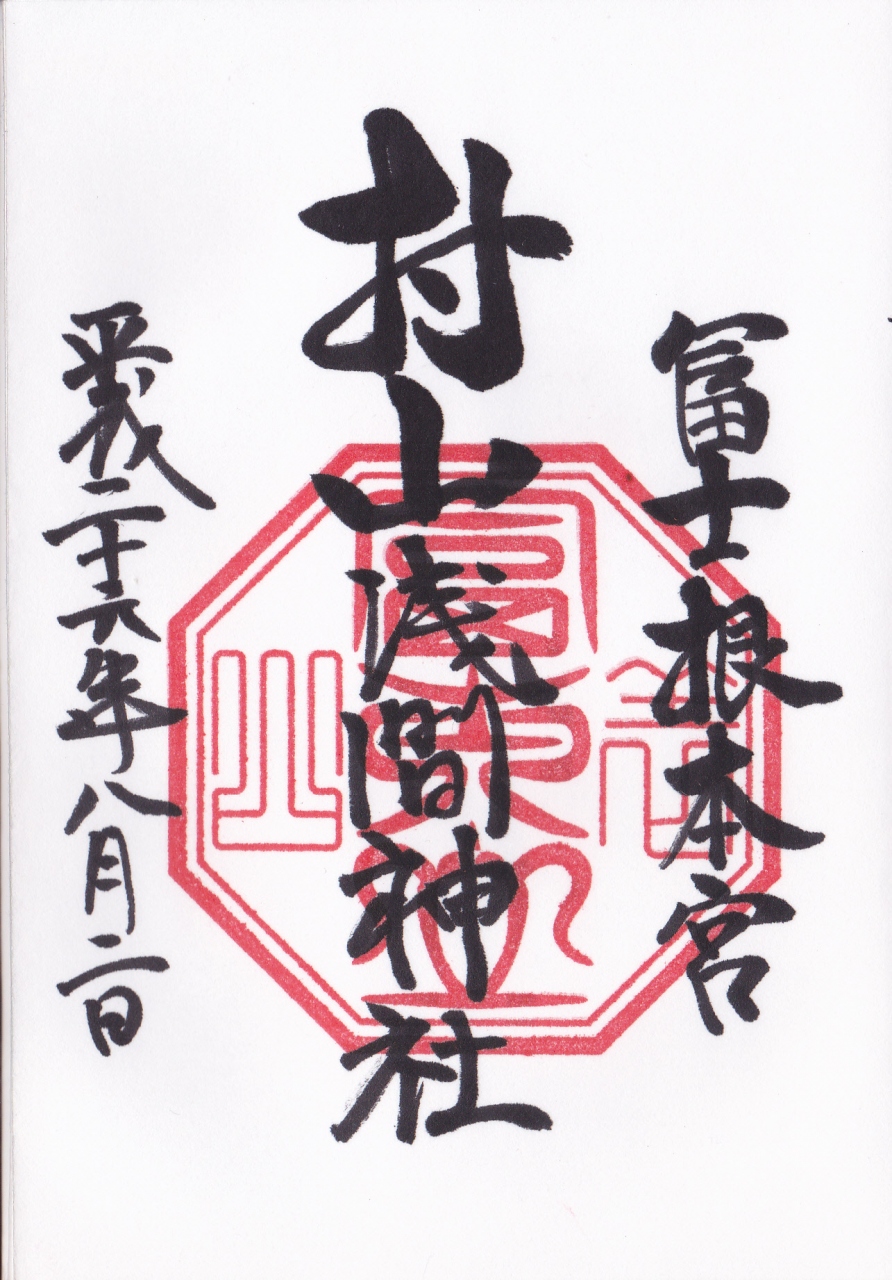 冨士根本宮
村山浅間神社
平成二十六年八月二日